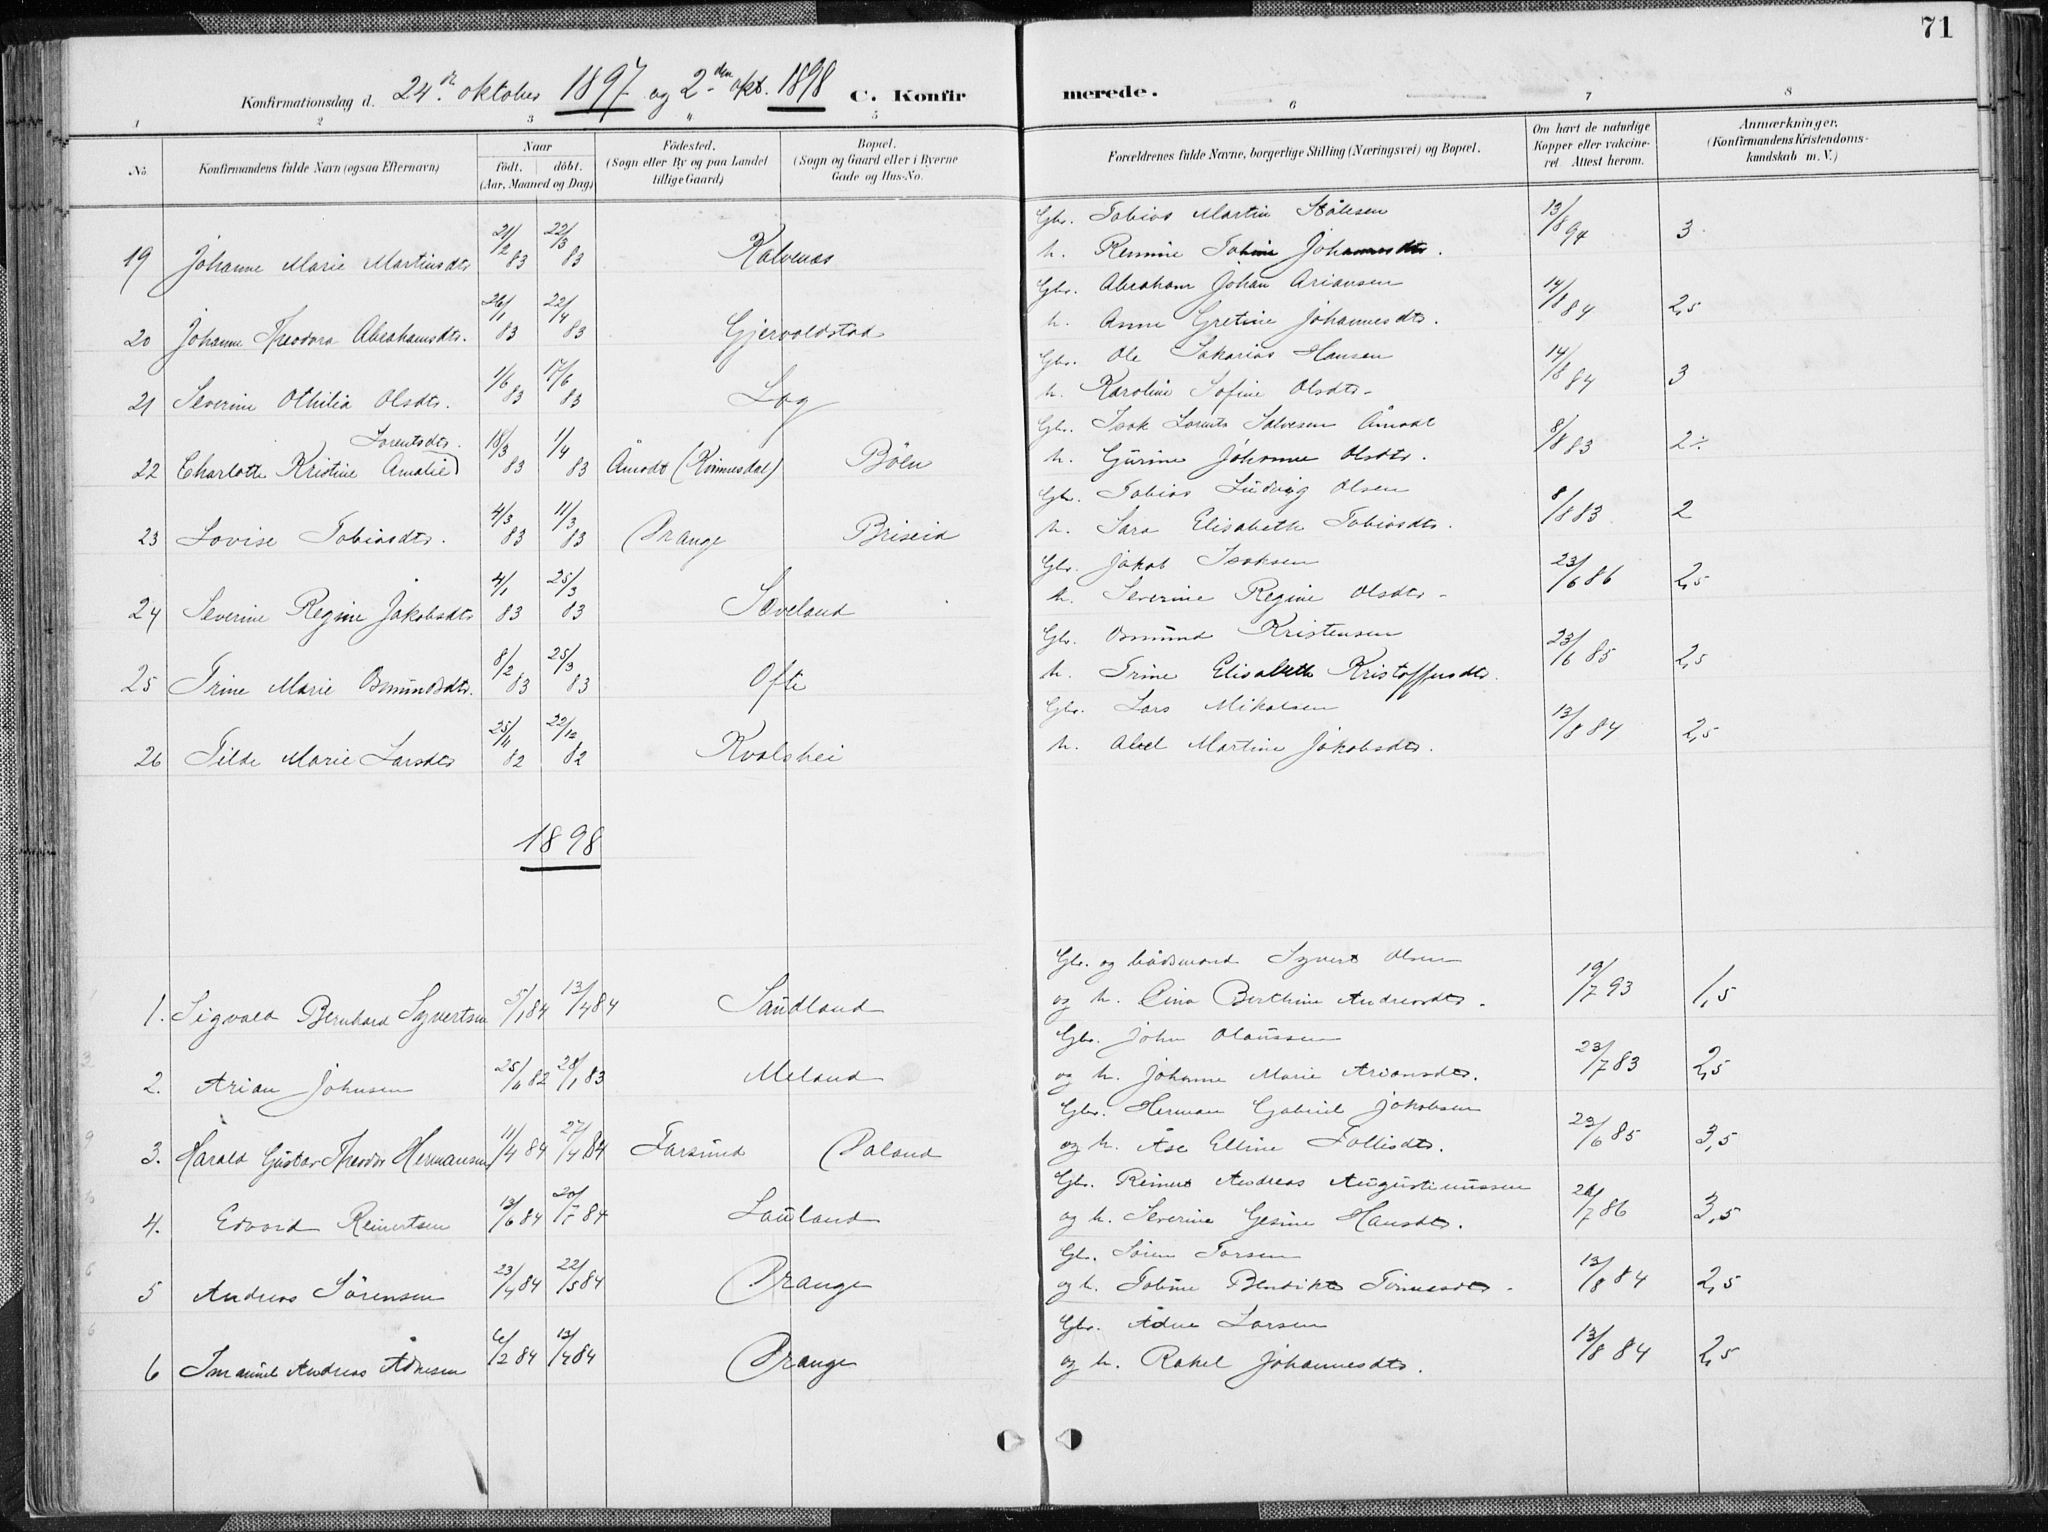 71
Konfirmationsdag d. 24de oktober 1897 og 2den okt. 1898 C. Konfirmerede.
1 2 3 4 5 6 7 8
No
Konfirmandens fulde Navn (ogsaa Efternavn)
Naar
født. døbt.
(Aar, Maaned og Dag)
Fødested.
(Sogn eller By og paa Landet
tillige Gaard)
Bopæl.
(Sogn og Gaard eller i Byerne
Gade og Hus-No.
Forældrenes fulde Navne, borgerlige Stilling (Næringsvei) og Bopæl.
Om havt de naturlige
Kopper eller vakcine-
ret. Attest herom.
Anmærkninger.
(Konfirmandens Kristendoms-
kundskab m. V.)
Gbr. Tobias Martin Ståhsen
19 Johanne Marie Martinsdtr 21/2 83 22/3 83 Kalvenes h. Remine Tobine Johannesdtr. 13/8 94 3
Gbr. Abraham Johan Ariansen
20 Johanne Theodora Abrahamsdtr. 26/1 83 22/4 83 Gjervoldstad h. Anne Gretine Johannesdtr. 14/8 84 2,5
Gbr. Ole Sakarias Hansen
21 Severine Othilia Olsdtr. 1/6 83 17/6 83 Log h. Karoline Sofine Olsdtr. 14/8 84 3
Lorentsdtr. Gbr. Isak Lorents Salvesen Åmodt
22 Charlotte Kristine Amalie 18/3 83 1/4 83 Åmodt (Kvinnesdal) Bøen h. Gurine Johanne Olsdtr. 8/8 83 2÷
Gbr. Tobias Ludvig Olsen
23 Lovise Tobiasdtr. 4/3 83 11/3 83 Prange Briseid h. Sara Elisabeth Tobiasdtr. 8/8 83 2
Gbr. Jakob Isaksen
24 Severine Regine Jakobsdtr 4/1 83 25/3 83 Sæveland h. Severine Regine Olsdtr. 23/6 86 2,5
Gbr. Osmund Kristensen
25 Trine Marie Osmundsdtr. 8/2 83 25/3 83 Ofte h. Trine Elisabeth Kristoffersdtr. 23/6 85 2,5
Gbr. Lars Mikalsen
26 Tilde Marie Larsdtr 25/11 82 22/12 82 Kvalshei h. Abel Martine Jakobsdtr. 13/8 84 2,5
1898
Gbr. og bådsmand Syvert Olsen
1. Sigvald Bernhard Syvertsen 5/1 84 13/4 84 Saudland og h. Cina Berthine Andreasdtr. 19/7 93 1,5
Gbr. John Olaussen
2. Arian Johnsen 25/11 82 28/1 83 Meland og h. Johanne Marie Ariansdtr. 23/7 83 2,5
Gbr. Herman Gabriel Jakobsen
3. Harald Gustav Theodor Hermansen 11/4 84 27/4 84 Farsund Paland og h. Åse Elline Tollisdtr. 23/6 85 3,5
Gbr. Reinert Andreas Augustinussen
4. Edvard Reinertsen 13/6 84 20/7 84 Lauland og h. Severine Gesine Hansdtr. 21/7 86 3,5
Gbr. Søren Torsen
5 Andreas Sørensen 23/4 84 22/5 84 Prange og h. Tobine Bendikte Tønnesdtr. 13/8 84 2,5
Gbr. Ådne Larsen
6 Imanuel Andreas Ådnesen 6/2 84 13/4 84 Prange og h. Rakel Johannesdtr. 13/8 84 2,5